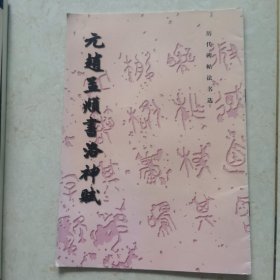 历代碑帖法书选
元趙孟頫書洛神賦